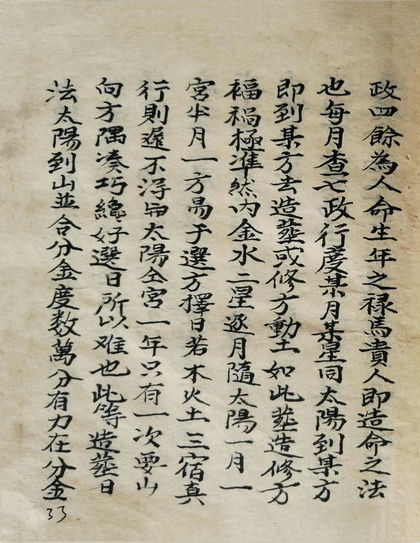 政四餘為人命生年之禄馬貴人即造命之法
也每月查七政行度某月某星同太陽到某方
即到某方去造塟或修方動土如此塟造修方
福禍極準然內金水二星逐月隨太陽一月一
宮半月一方易于選方擇日若木火土三宿真
行則遲不淂与太陽仝宮一年只有一次要山
向方隅凑巧纔好選日所以难也此等造塟日
法太陽到山並合分金度数萬分有力在分金
33